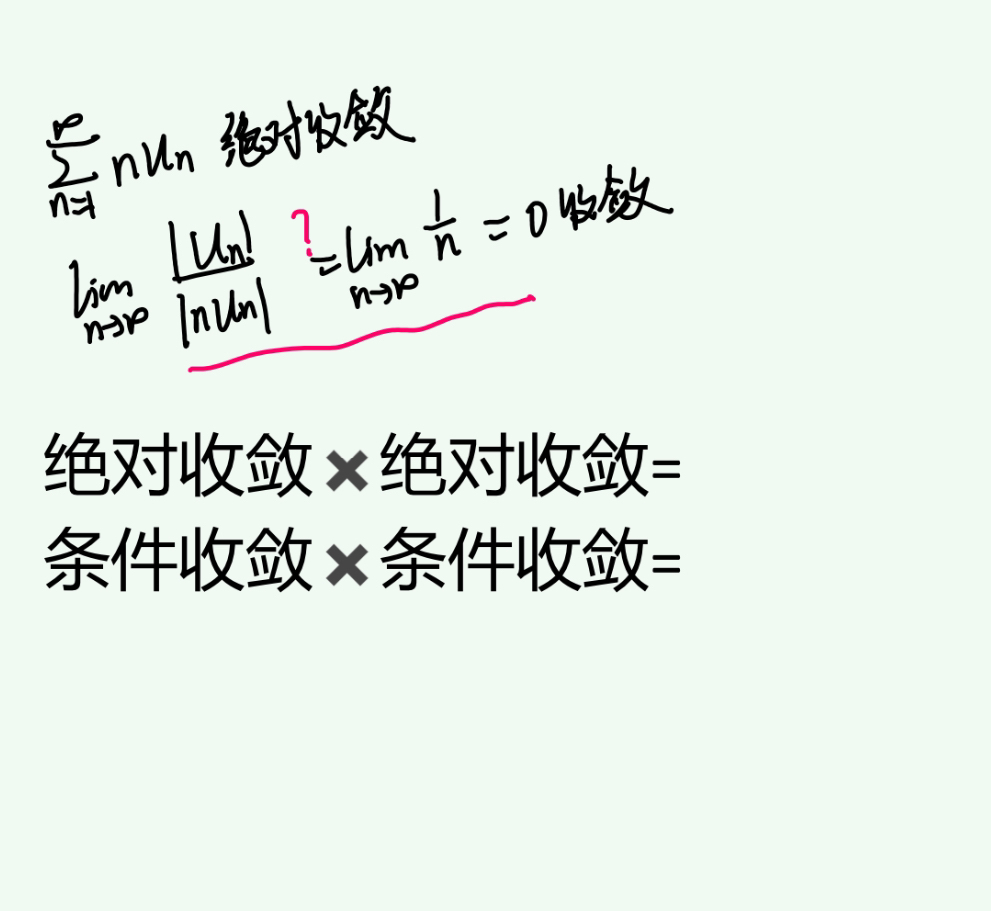 ∞
∑ n Un 绝对收敛
n=1
lim |Un| / |nUn| ?= lim 1/n = 0 收敛
n→∞ n→∞
绝对收敛✖绝对收敛=
条件收敛✖条件收敛=